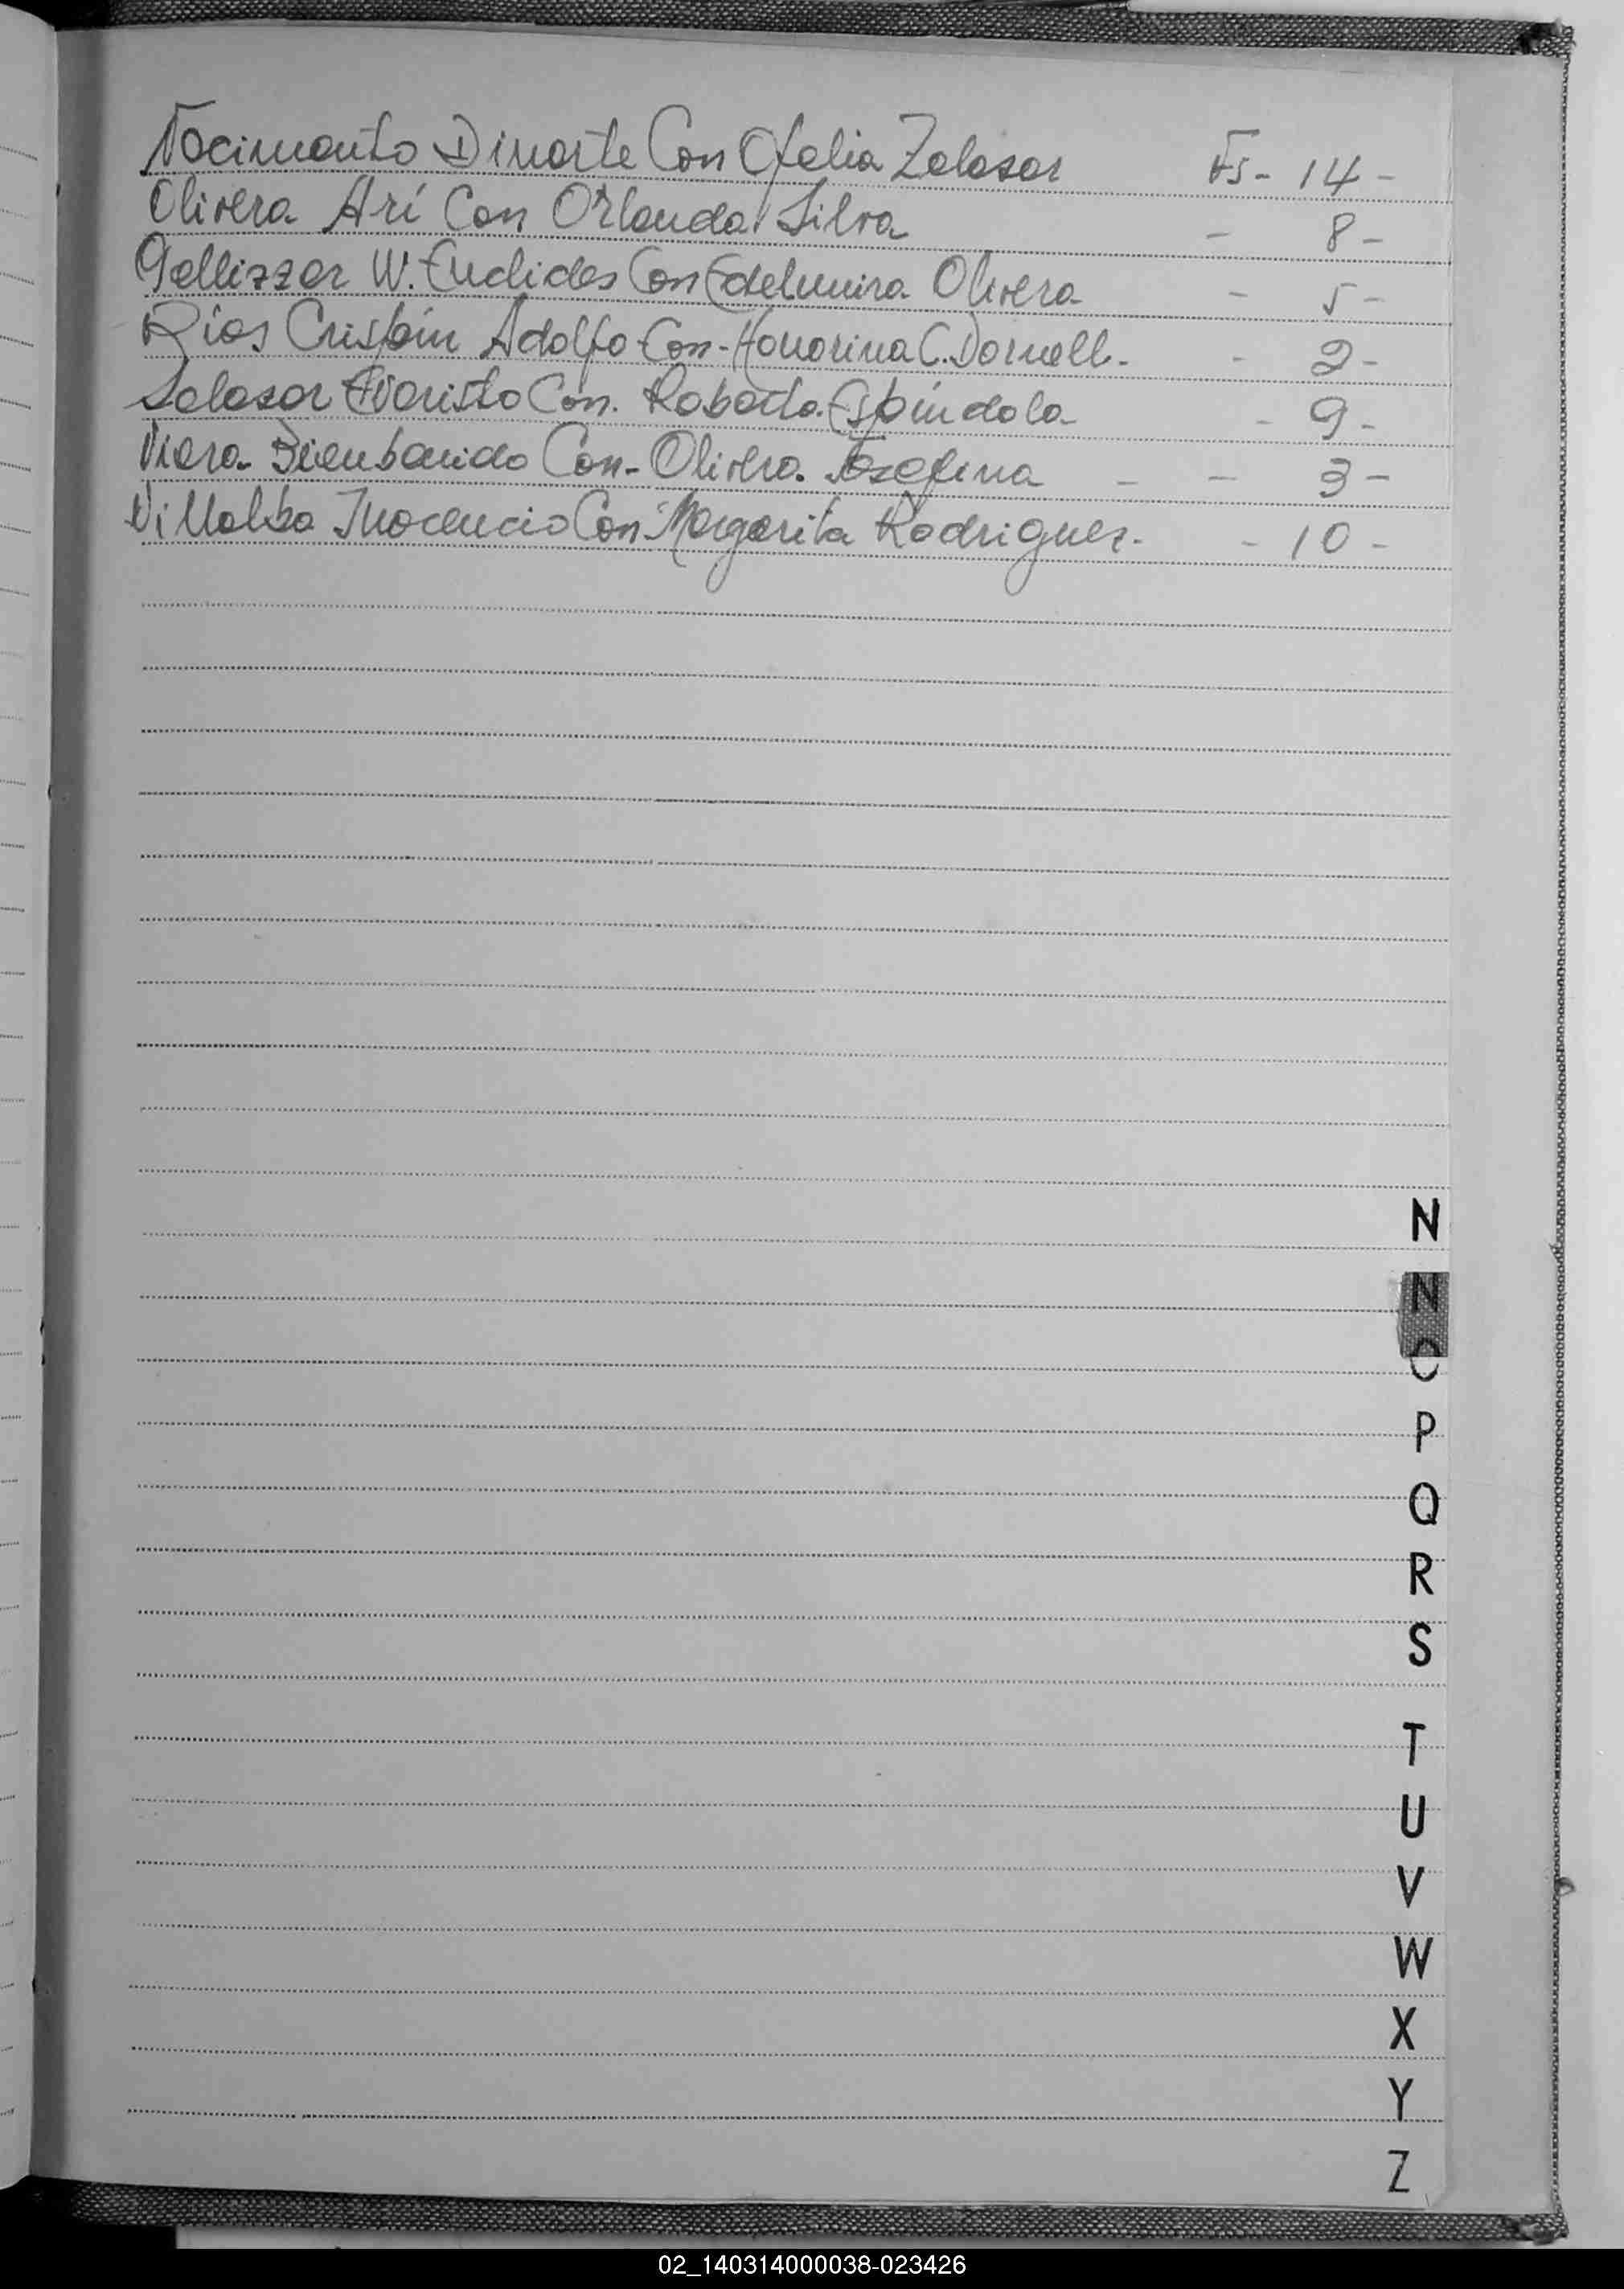 Nacimento Dinarte Con Ofelia Zalasar Fs- 14 -
Olivera Ari Con Orlanda Silva - 8 -
Pellizzer W. Euclides Con Edelmira Olivera - 5 -
Rios Crispín Adolfo Con- Honorina C. Dornell. - 2 -
Salasar Evaristo Con. Roberta Espíndola - 9 -
Viera Bienbenido Con- Olivera Josefina - - 3 -
Villalba Inocencio Con Margarita Rodriguez. - 10 -
N
N
O
P
Q
R
S
T
U
V
W
X
Y
Z
02_140314000038-023426